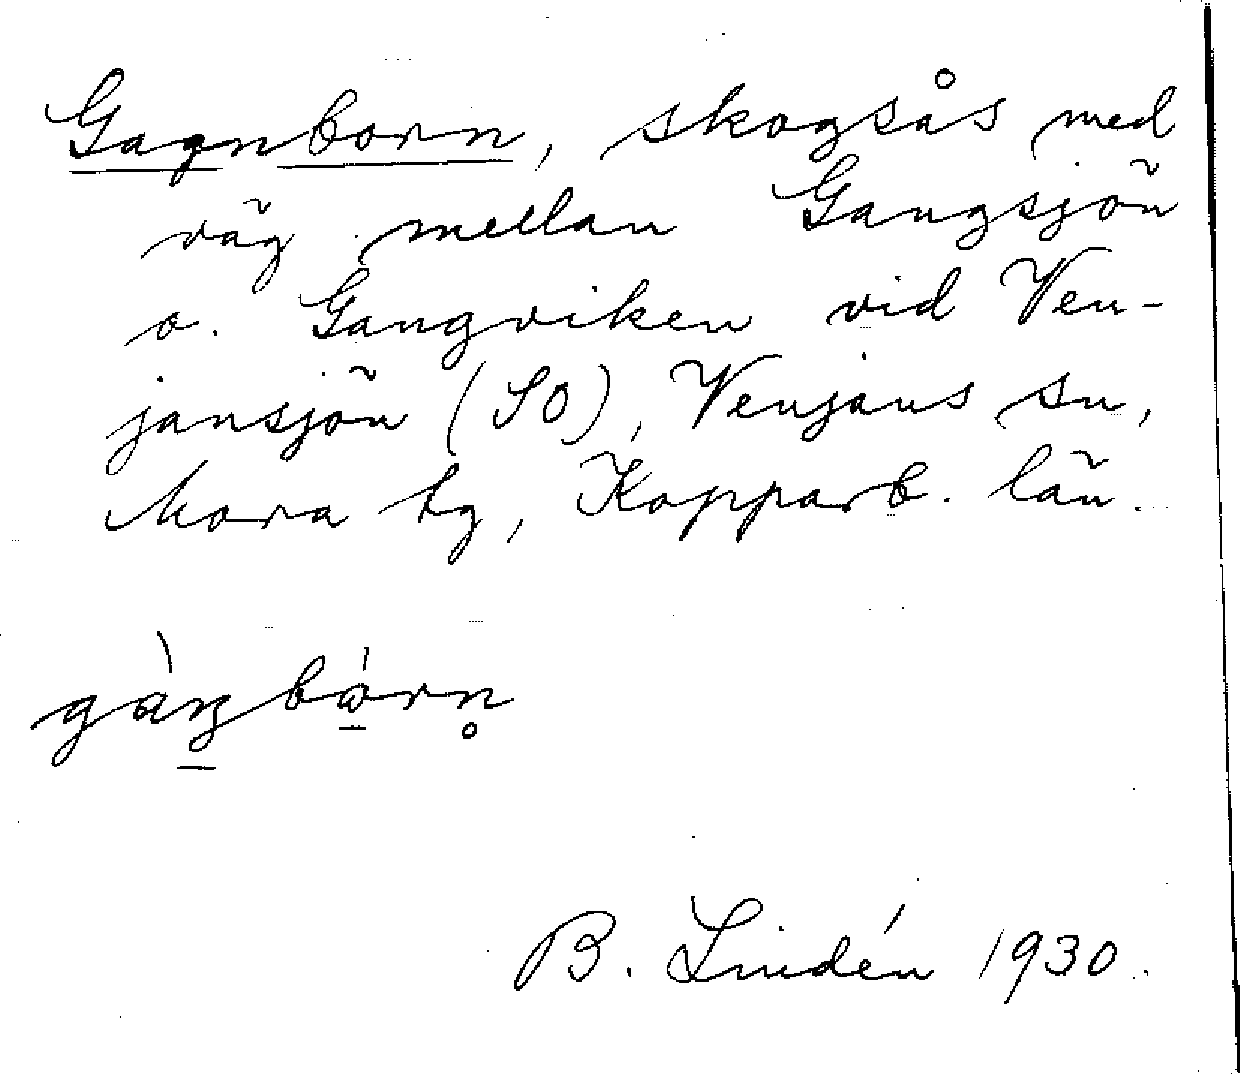 Gagnborn, skogsås med
väg mellan Gangsjön
o. Gangviken vid Ven-
jansjön (SO), Venjans sn,
Mora tg, Kopparb. län.
gàŋbárn̥
B. Lindén 1930.